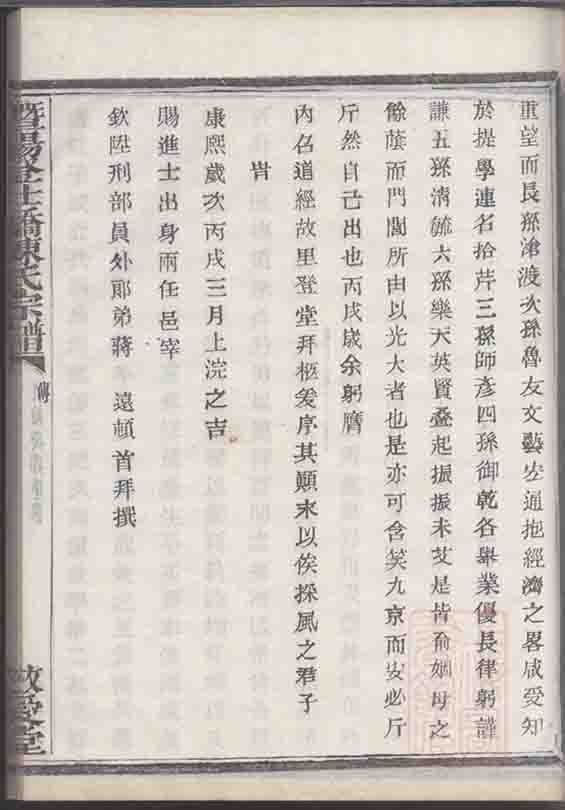 重望而長孫滄渡次孫魯友文藝岀通抱經濟之畧咸受知
於提學連名拾芹三孫師彥四孫御乾各舉業優長律躬謹
謙五孫清毓六孫樂天英賢叠起振振未艾是皆俞姻母之
餘蔭而門閭所由以光大者也是亦可含笑九京而安必斤
斤然自己出也丙戌歲余躬膺
內召道經故里登堂拜柩爰序其顛末以俟採風之君子
旹
康熙歲次丙戌三月上浣之吉
賜進士出身兩任邑宰
欽陞刑部員外郎弟蔣遠頓首拜撰
暨陽 仕橋陳氏宗譜
傳
敬愛堂